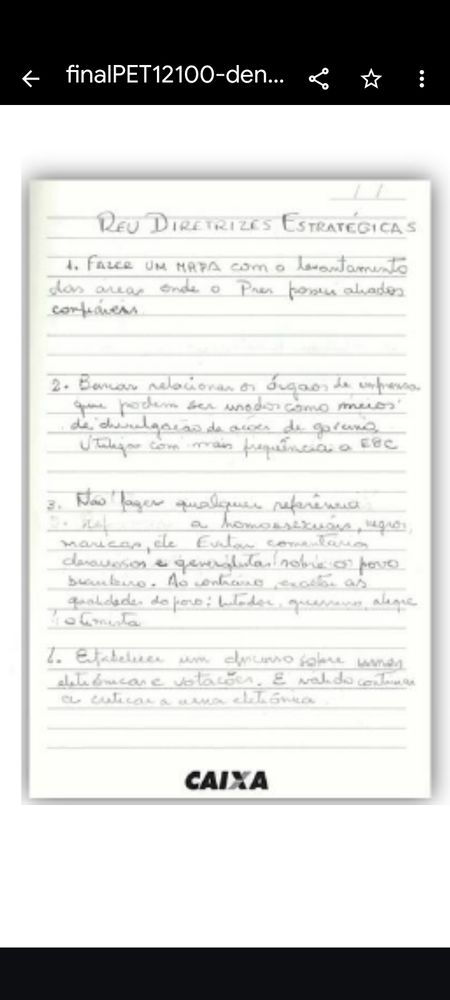 finalPET12100-den...
/ /
REU DIRETRIZES ESTRATÉGICAS
1. FAZER UM MAPA com o levantamento
das áreas onde o Pres possui aliados
confiáveis.
2. Buscar relacionar os órgãos de imprensa
que podem ser usados como meios
de divulgação de ações de governo.
Utilizar com mais frequência a EBC
3. Não fazer qualquer referência
a homossexuais, negros,
maricas, etc Evitar comentários
e generalistas sobre o povo
brasileiro. Ao contrário, exaltar as
qualidades do povo: lutador, guerreiro, alegre
otimista
Estabelecer um discurso sobre urnas
eletrônicas e votações. É válido continuar
a criticar a urna eletrônica.
CAIXA